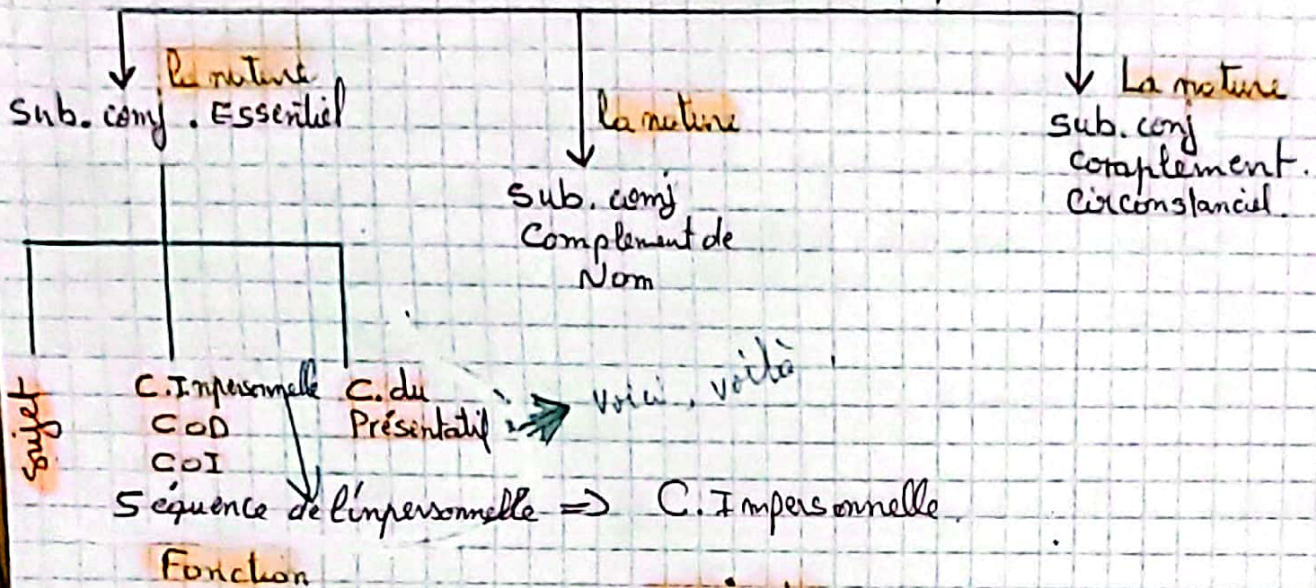 La nature
Sub. conj. Essentiel
la nature
Sub. conj
Complement de
Nom
La nature
Sub. conj
Complement.
Circonstanciel.
Sujet
C. Inpersonnelle
COD
COI
C. du
Présentatif
voici, voilà
Séquence de l'inpersonnelle => C. Impersonnelle.
Fonction